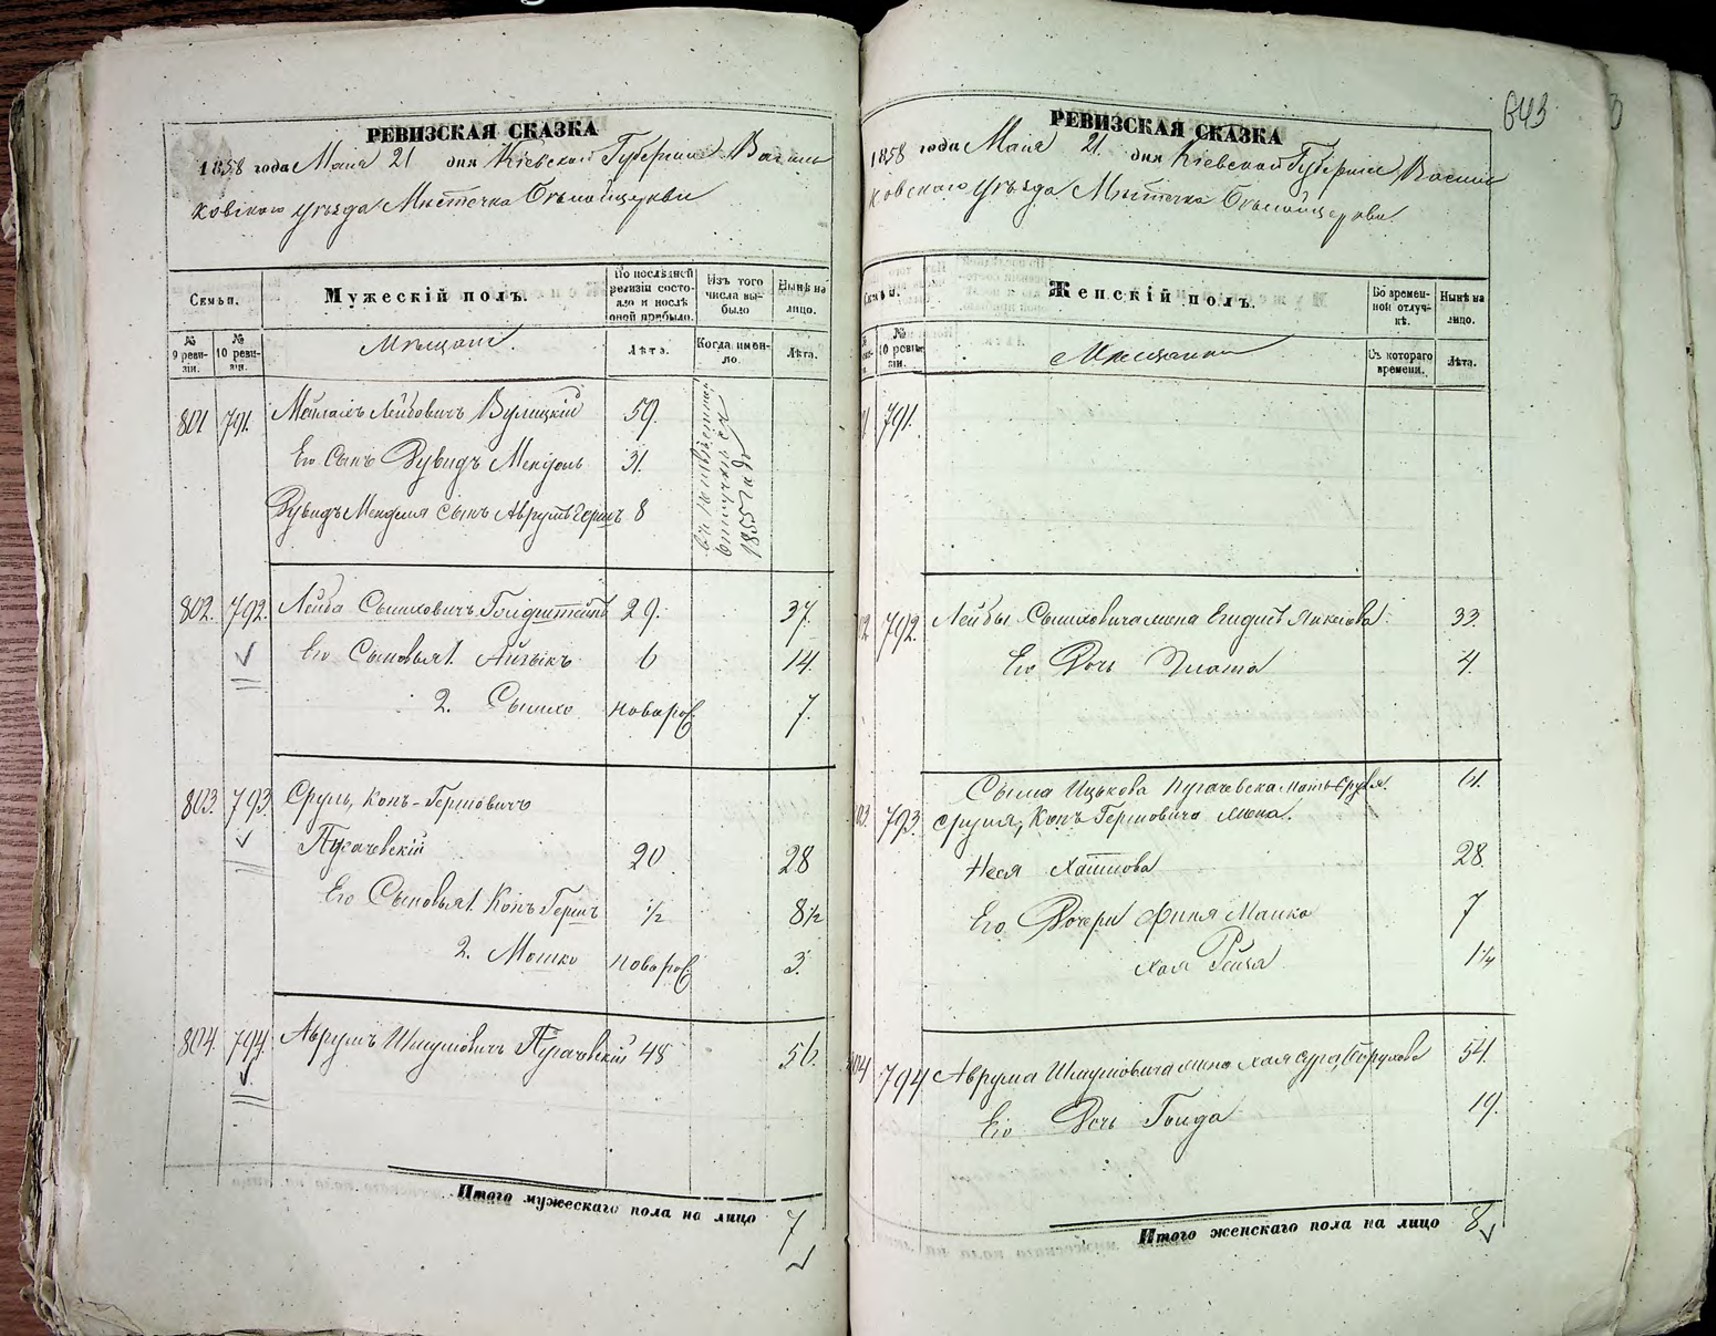 643
РЕВИЗСКАЯ СКАЗКА
1858 года Маія 21 дня Кіевской Губерніи Василь
ковскаго уѣзда Мѣстечка Бѣлойцеркви
Семьи.
Мужескій полъ.
По послѣдней ревизіи состояло и послѣ оной прибыло.
Изъ того числа выбыло
Нынѣ на лицо.
№ 9 ревизіи.
№ 10 ревизіи.
Мѣщане.
Лѣта.
Когда именно.
Лѣта.
801 791. Лейбовичъ Вулицкій 59.
Его Сынъ Дувидъ Мендель 31.
Дувидъ Менделя сынъ Аврумъ Гершъ 8
въ неизвѣстной
отлучкѣ съ
1855 года
802. 792. Лейба Сымховичъ Голдштейнъ 29. 37.
Его Сыновья 1. Айзыкъ 6 14.
2. Сымхо новорож. 7.
803. 793. Сруль, Копъ-Гершовичъ
Пугачевскій 20 28
Его Сыновья 1. Копъ Гершъ 1/2 8 1/2
2. Мошко новорож. 3.
804. 794. Аврумъ Шмуловичъ Пугачевскій 48 56.
Итого мужескаго пола на лицо 7
РЕВИЗСКАЯ СКАЗКА
1858 года Маія 21. дня Кіевской Губерніи Василь
ковскаго уѣзда Мѣстечка Бѣлойцеркви
Женскій полъ.
Во временной отлучкѣ.
Нынѣ на лицо.
№ 10 ревизіи.
Мѣщанки
Съ котораго времени.
Лѣта.
791.
792. Лейбы Сымховича жена Янкелова 33.
Его Дочь Злата 4.
Сыма Ицькова Пугачевска мать Сруля. 61.
793. Сруля, Копъ Гершовича жена.
Неся Хаимова 28.
Его Дочери Малка 7
Хая Рейза 1 1/4
794. Аврума Шмуловича жена Хая Сура Борухова 54.
Его Дочь Голда 19.
Итого женскаго пола на лицо 8